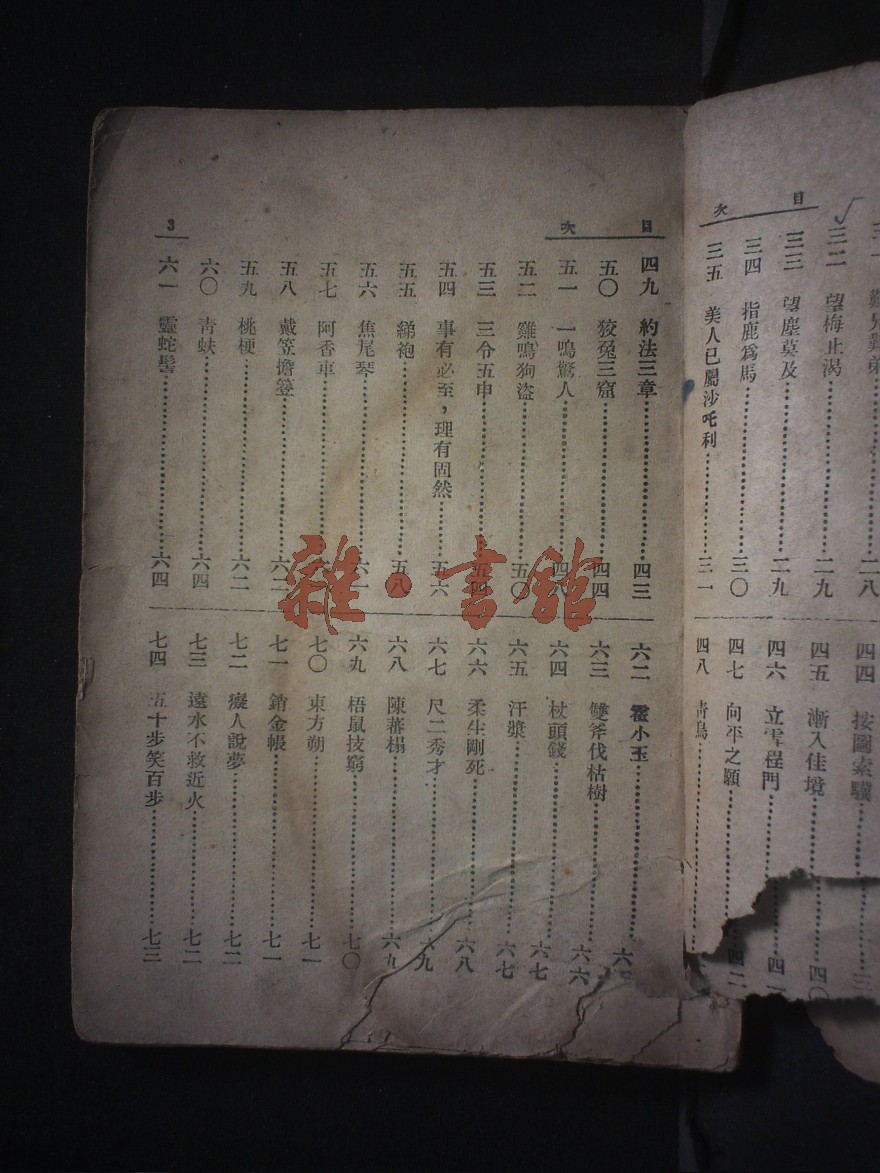 目次
三一 難兄難弟……二八
三二 望梅止渴……二九
三三 望塵莫及……二九
三四 指鹿爲馬……三〇
三五 美人已屬沙吒利……三一
四四 按圖索驥
四五 漸入佳境……四〇
四六 立雪程門
四七 向平之願……四二
四八 青鳥
目次
3
四九 約法三章……四三
五〇 狡兔三窟……四四
五一 一鳴驚人……四八
五二 雞鳴狗盜……五〇
五三 三令五申……五四
五四 事有必至，理有固然……五六
五五 綈袍……五八
五六 焦尾琴……六一
五七 阿香車
五八 戴笠擔簦……六二
五九 桃梗……六二
六〇 青蚨……六四
六一 靈蛇髻……六四
六二 霍小玉
六三 雙斧伐枯樹……六六
六四 杖頭錢……六七
六五 汗漿……六七
六六 柔生剛死……六八
六七 尺二秀才……六九
六八 陳蕃榻……六九
六九 梧鼠技窮……七〇
七〇 東方朔……七一
七一 銷金帳……七一
七二 癡人說夢……七二
七三 遠水不救近火……七二
七四 五十步笑百步……七三
雜·書館